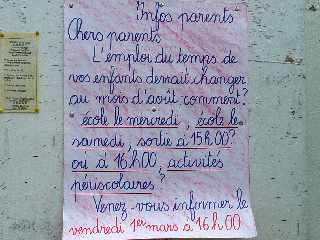 Infos parents
Chers parents
L'emploi du temps de
vos enfants devrait changer
au mois d'août comment?
école le mercredi, école le
samedi, sortie à 15h00?
ou à 16h00, activités
périscolaires?
Venez-vous informer le
vendredi 1er mars à 16h00